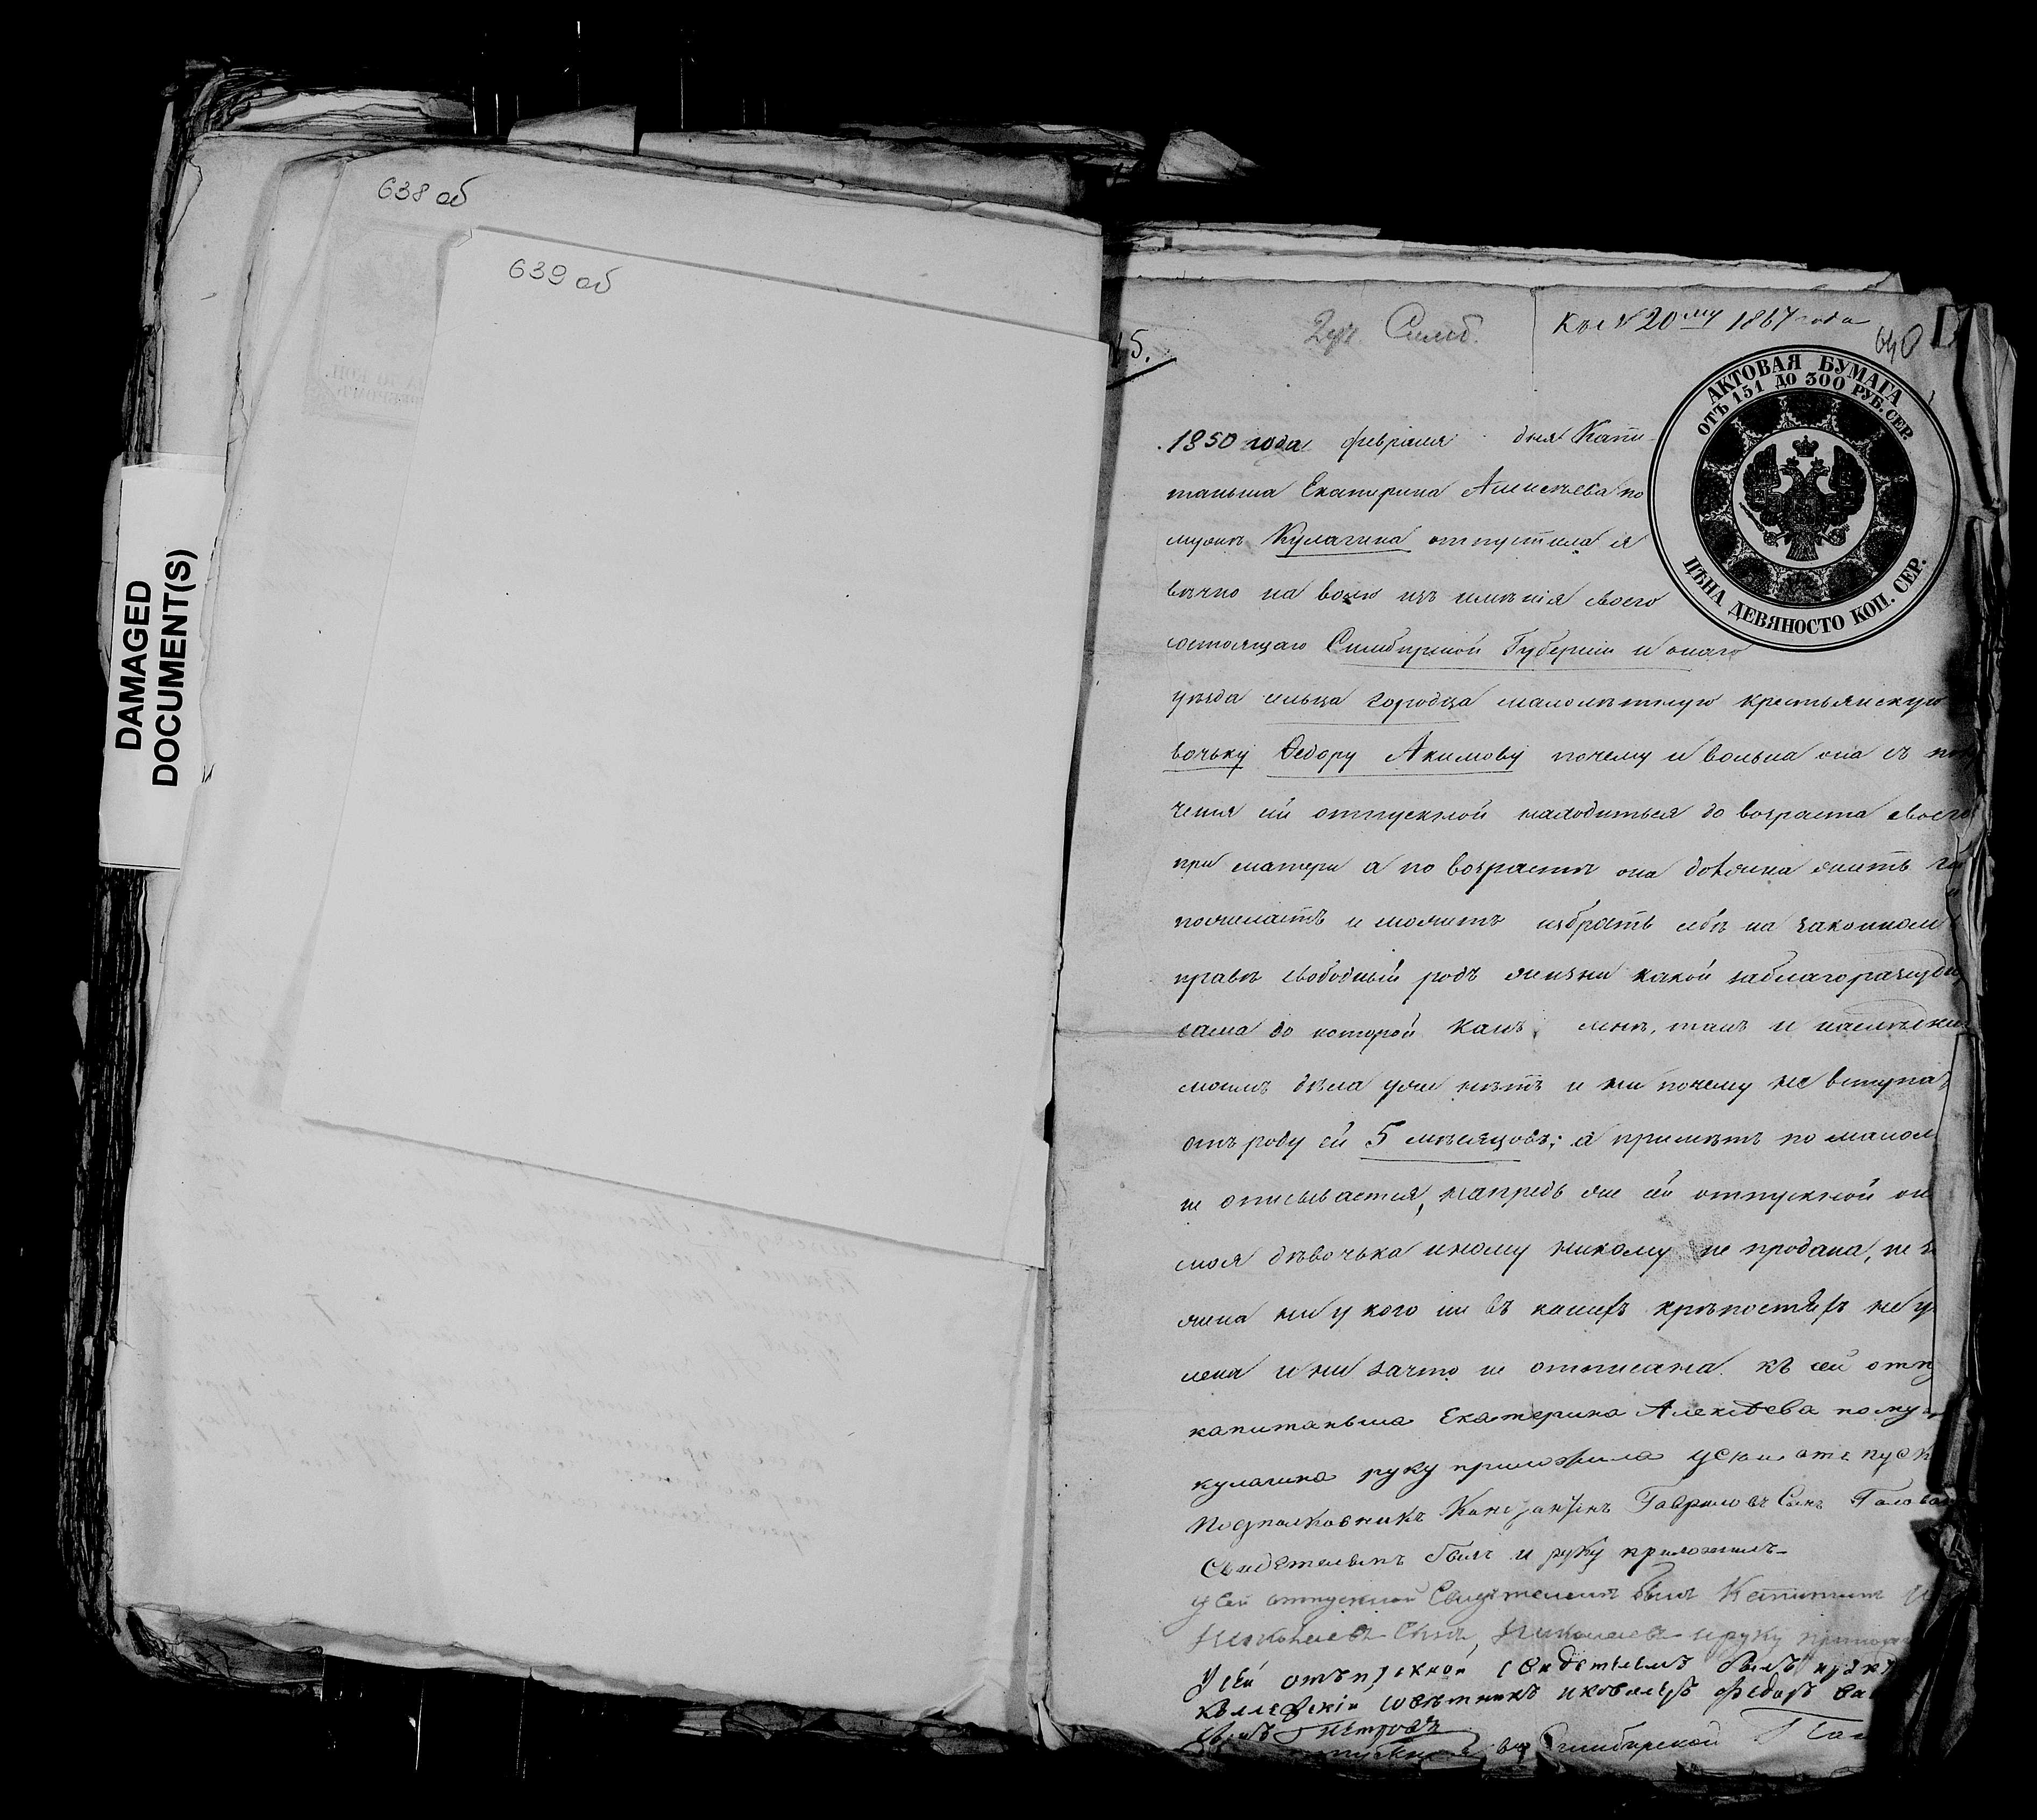 638 об
639 об
DAMAGED
DOCUMENT(S)
15.
Симб.
Къ № 20му 1867 года
640
АКТОВАЯ БУМАГА
ОТЪ 151 ДО 300 РУБ. СЕР.
ЦѢНА ДЕВЯНОСТО КОП. СЕР.
1850 года февраля дня Капи-
танша Екатерина Алексѣева по
мужѣ Кулагина отпустила я
вѣчно на волю изъ имѣнія своего
состоящаго Симбирской Губерніи и онаго
уѣзда сельца Городца малолѣтнюю крестьянскую
вочьку Ѳедору Акимову почему и вольна она съ
ченія сей отпускной находиться до возраста своего
при матери а по возрастѣ она должна жить
пожелаетъ и можетъ избрать себѣ на законном
правѣ свободный родъ жизни какой заблагоразсуди
сама до которой какъ мнѣ, такъ и наслѣдни
моимъ дѣла уже нѣтъ и ни почему не вступа
отъ роду ей 5 мѣсяцовъ; а примѣтъ по малол
не описывается, напредь же сей отпускной он
моя дѣвочька иному никому не продана, не
жена ни у кого ни въ какихъ крѣпостяхъ не у
лена и ни зачто не отписана. къ сей отп
капитаньша Екатерина Алексѣева помуж
кулагина руку приложила усей отпуск
Подполковникъ Константинъ Гавриловъ Сынъ
Свидетелемъ былъ и руку приложилъ
у сей отпускной Свидѣтелемъ былъ Капитанъ
Николаевъ Сынъ Николаевъ и руку
Усей отъпускной свидетелемъ былъ
колежскій совѣтникъ икавалеръ Федоръ
Петровъ
въ Симбирской